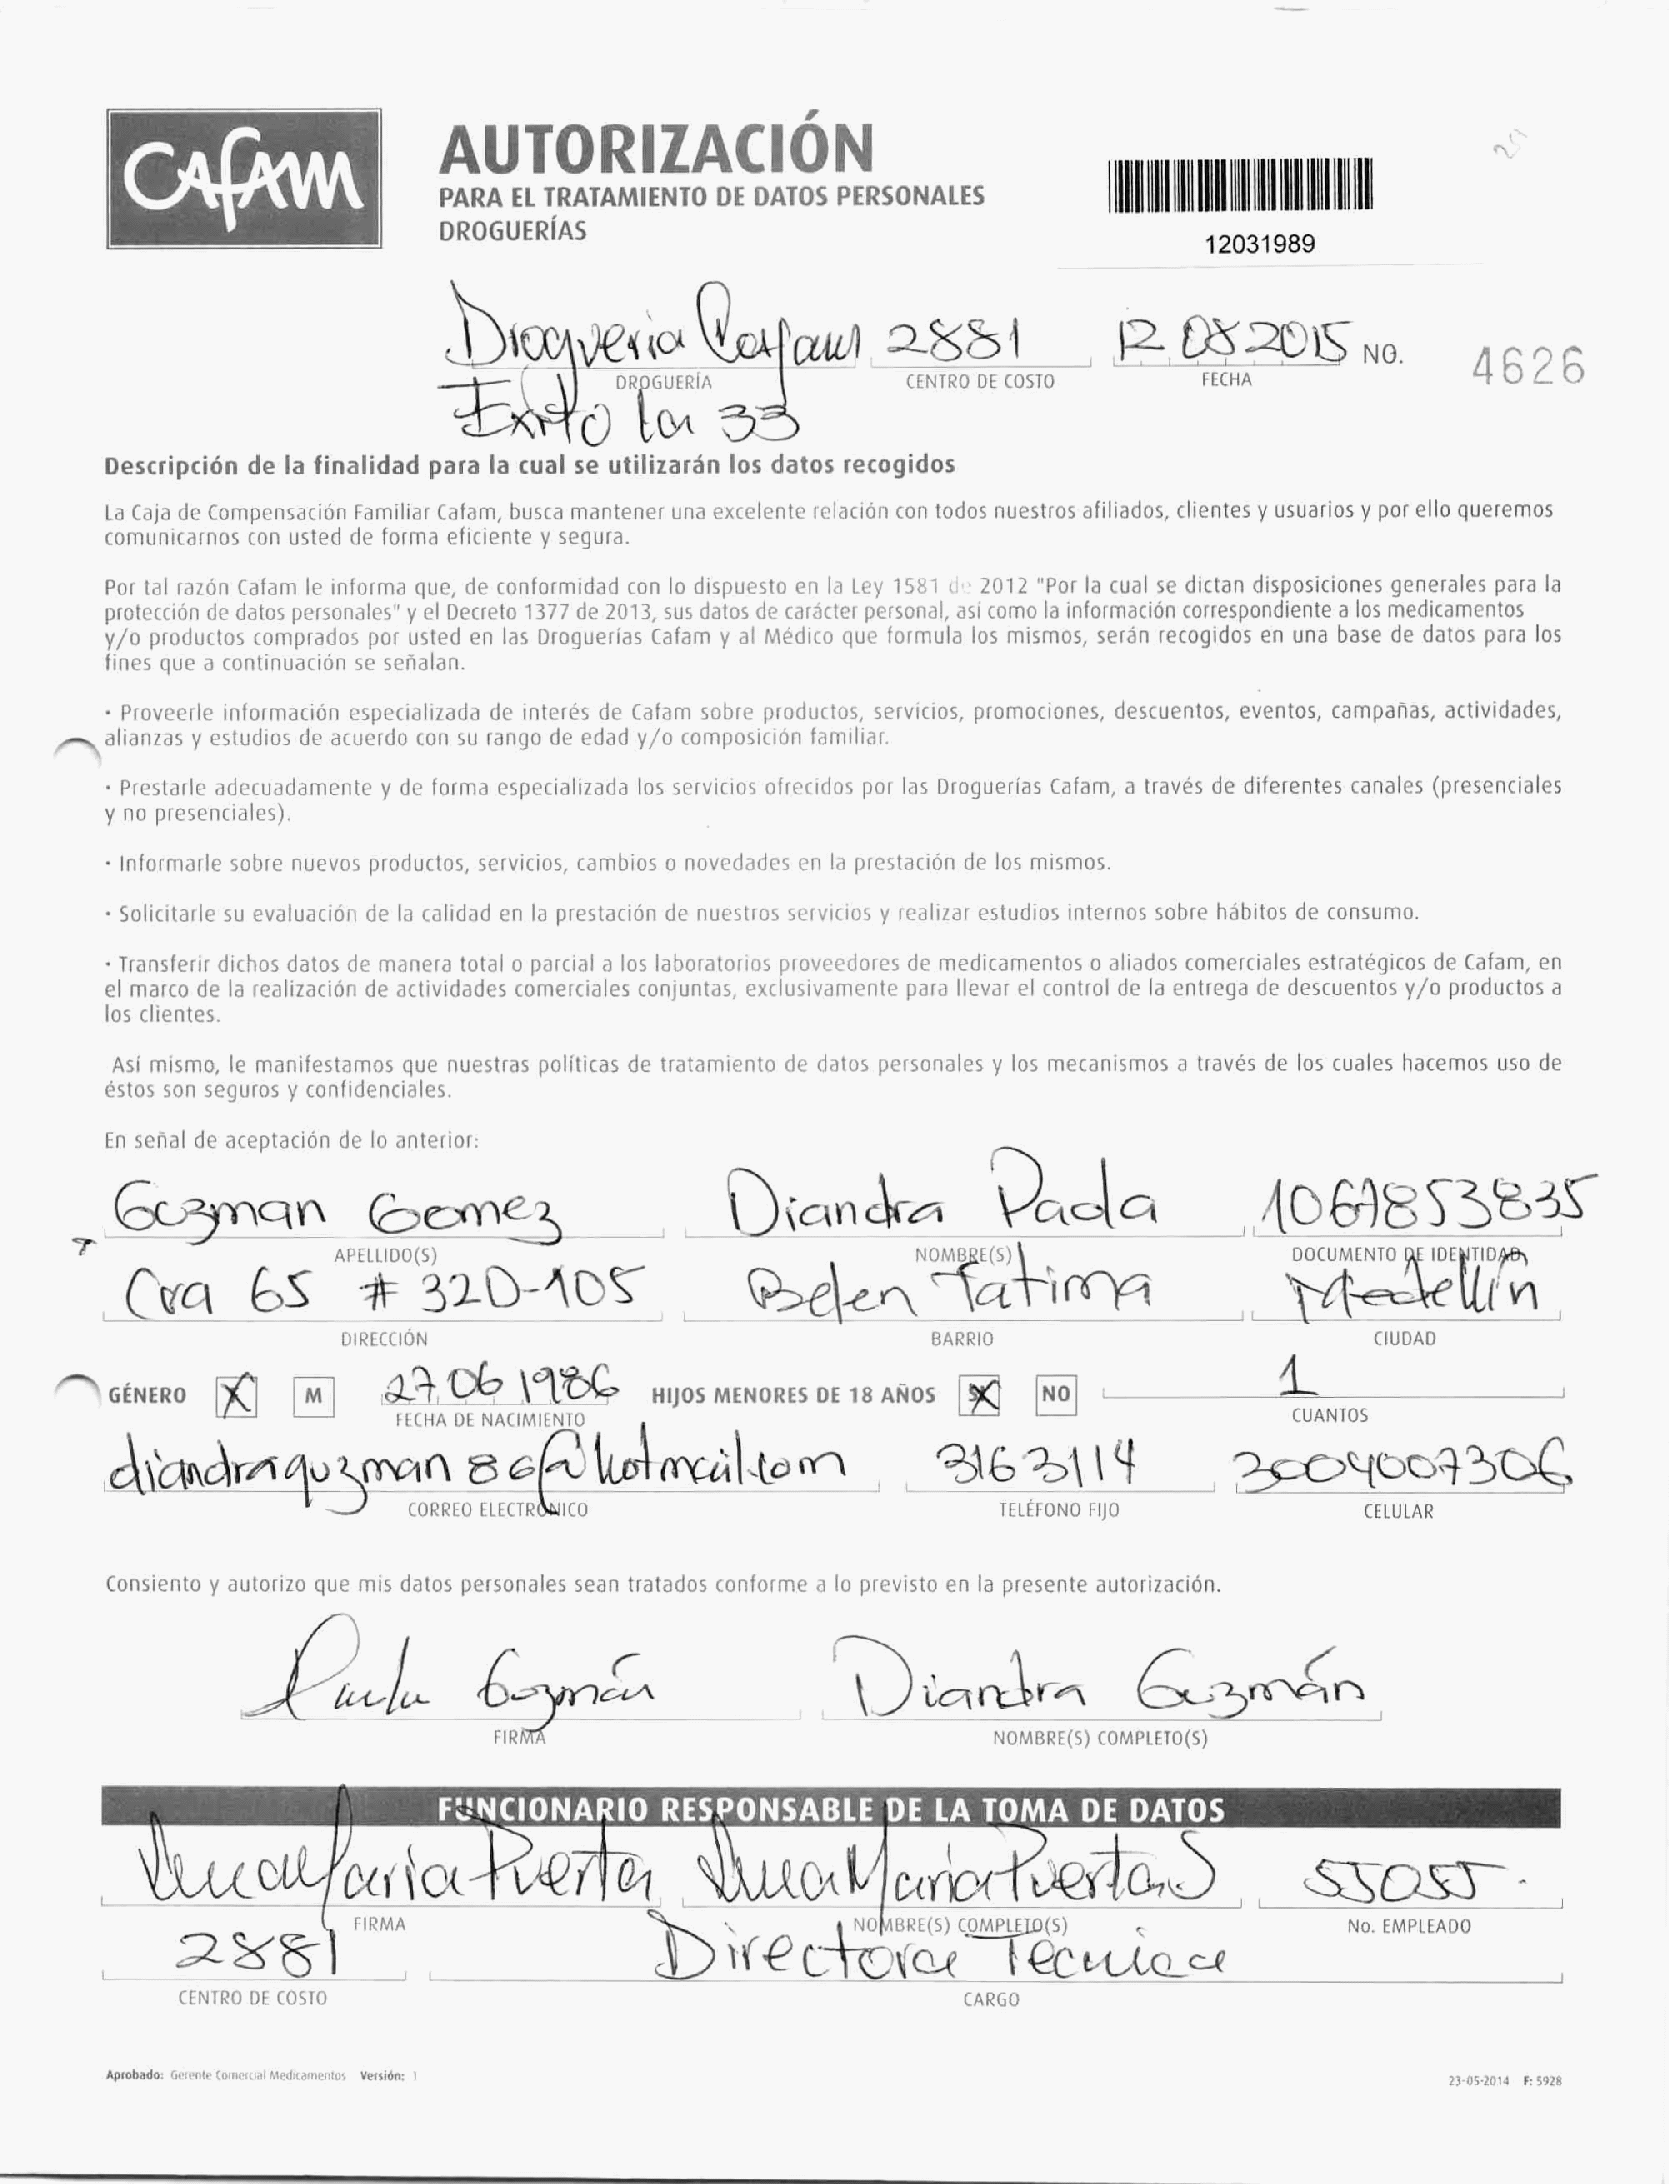 CAfAM
AUTORIZACIÓN
PARA EL TRATAMIENTO DE DATOS PERSONALES
DROGUERÍAS
12031989
Drogueria Cafam 2881 12 08 2015 NO. 4626
DROGUERÍA CENTRO DE COSTO FECHA
Exito la 33
Descripción de la finalidad para la cual se utilizarán los datos recogidos
La Caja de Compensación Familiar Cafam, busca mantener una excelente relación con todos nuestros afiliados, clientes y usuarios y por ello queremos
comunicarnos con usted de forma eficiente y segura.
Por tal razón Cafam le informa que, de conformidad con lo dispuesto en la Ley 1581 de 2012 "Por la cual se dictan disposiciones generales para la
protección de datos personales" y el Decreto 1377 de 2013, sus datos de carácter personal, así como la información correspondiente a los medicamentos
y/o productos comprados por usted en las Droguerías Cafam y al Médico que formula los mismos, serán recogidos en una base de datos para los
fines que a continuación se señalan.
· Proveerle información especializada de interés de Cafam sobre productos, servicios, promociones, descuentos, eventos, campañas, actividades,
alianzas y estudios de acuerdo con su rango de edad y/o composición familiar.
· Prestarle adecuadamente y de forma especializada los servicios ofrecidos por las Droguerías Cafam, a través de diferentes canales (presenciales
y no presenciales).
· Informarle sobre nuevos productos, servicios, cambios o novedades en la prestación de los mismos.
· Solicitarle su evaluación de la calidad en la prestación de nuestros servicios y realizar estudios internos sobre hábitos de consumo.
· Transferir dichos datos de manera total o parcial a los laboratorios proveedores de medicamentos o aliados comerciales estratégicos de Cafam, en
el marco de la realización de actividades comerciales conjuntas, exclusivamente para llevar el control de la entrega de descuentos y/o productos a
los clientes.
Así mismo, le manifestamos que nuestras políticas de tratamiento de datos personales y los mecanismos a través de los cuales hacemos uso de
éstos son seguros y confidenciales.
En señal de aceptación de lo anterior:
Guzman Gomez Diandra Paola
APELLIDO(S) NOMBRE(S) DOCUMENTO DE IDENTIDAD
Cra 65 # 32D-105 Belen Fatima Medellín
DIRECCIÓN BARRIO CIUDAD
GÉNERO X M 27 06 1986 HIJOS MENORES DE 18 AÑOS X NO 1
FECHA DE NACIMIENTO CUANTOS
diandraguzman86@hotmail.com 3163114 3004007306
CORREO ELECTRÓNICO TELÉFONO FIJO CELULAR
Consiento y autorizo que mis datos personales sean tratados conforme a lo previsto en la presente autorización.
Paula Guzmán Diandra Guzmán
FIRMA NOMBRE(S) COMPLETO(S)
FUNCIONARIO RESPONSABLE DE LA TOMA DE DATOS
Maria Puerta Maria Puerta S 55055
FIRMA NOMBRE(S) COMPLETO(S) No. EMPLEADO
2881 Directora Tecnica
CENTRO DE COSTO CARGO
Aprobado: Gerente Comercial Medicamentos Versión: 1
23-05-2014 F: 5928